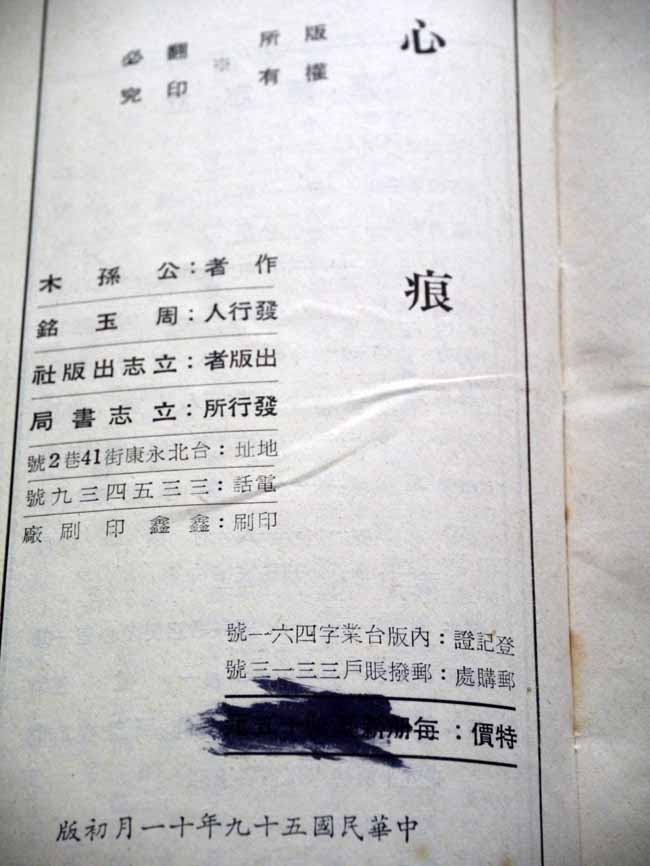 心痕
版權所有※翻印必究
作者：公孫木
發行人：周玉銘
出版者：立志出版社
發行所：立志書局
地址：台北永康街41巷2號
電話：三三五四三九號
印刷：鑫鑫印刷廠
登記證：內版台業字四六一一號
郵購處：郵撥賬戶三三一三號
特價：每册新
中華民國五十九年十一月初版